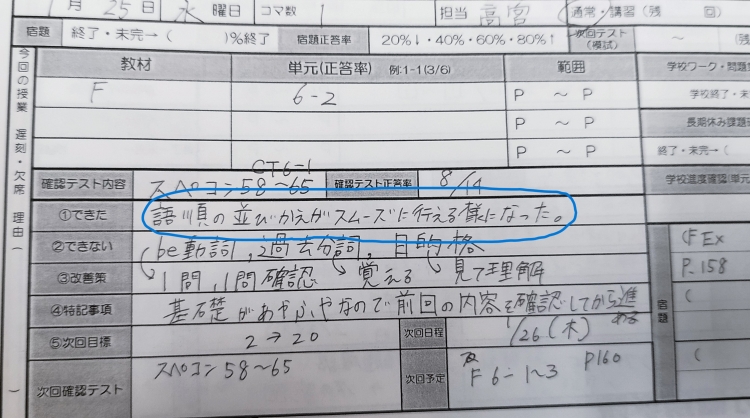 月 25日 水 曜日 コマ数 1 担当 高宮 通常・講習(残 回)
宿題 終了・未完→( )%終了 宿題正答率 20%↓・40%・60%・80%↑ 次回テスト(模試) ~ (残
教材 単元(正答率) 例:1-1(3/6) 範囲 学校ワーク・問題
今回の授業 遅刻・欠席 理由( )
F 6-2 P ~ P 学校終了・未
P ~ P 長期休み課題
P ~ P 終了・未完→(
CT6-1
確認テスト内容 スペコン58~65 確認テスト正答率 8/14 学校進度確認:単元
①できた 語順の並びかえがスムーズに行える様になった。
②できない be動詞, 過去分詞, 目的格 (F Ex
③改善策 1問,1問確認 覚える 見て理解 P.158
④特記事項 基石楚があやふやなので前回の内容を確認してから進める 宿題 (
⑤次回目標 2→20 次回日程 1/26(木)
次回確認テスト スペコン58~65 次回予定 F6-1~3 P160 (